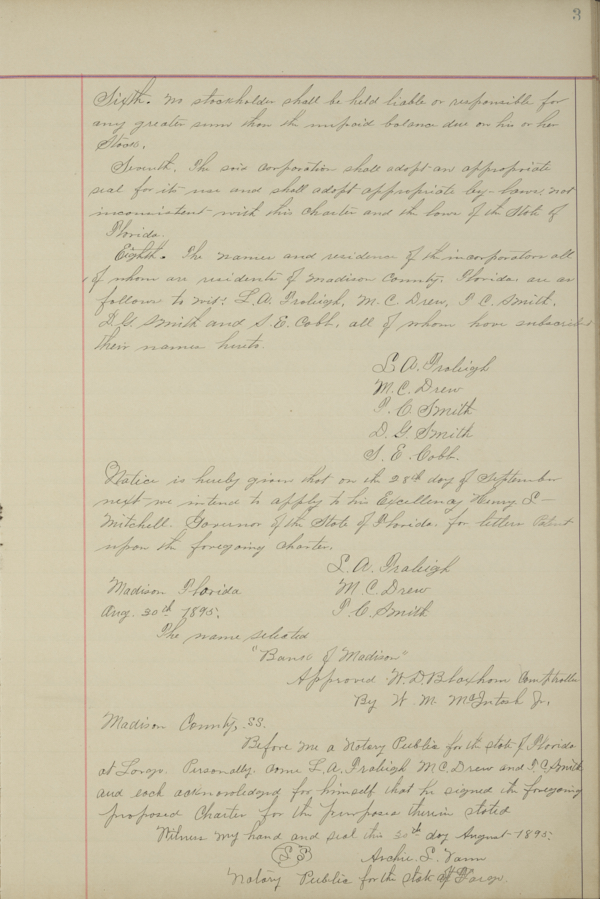 3
Sixth. No stockholder shall be held liable or responsible for
any greater sum than the unpaid balance due on his or her
Stock.
Seventh. The said corporation shall adopt an appropriate
seal for its use and shall adopt appropriate by-laws, not
inconsistent with this Charter and the laws of the State of
Florida.
Eighth. The names and residence of the incorporators all
of whom are residents of Madison County, Florida, are as
follows to wit: L. A. Fraleigh, M. C. Drew, P. C. Smith,
D. G. Smith and S. E. Cobb, all of whom have subscribed
their names hereto.
L. A. Fraleigh
M. C. Drew
P. C. Smith
D. G. Smith
S. E. Cobb.
Notice is hereby given that on the 28th day of September
next we intend to apply to his Excellency Henry L-
Mitchell, Governor of the State of Florida, for letters Patent
upon the foregoing charter.
L. A. Fraleigh
Madison Florida M. C. Drew
Aug. 20th 1895. P. C. Smith
The name selected
"Bank of Madison"
Approved W. D. Bloxham Comptroller
By W. M. McIntosh Jr,
Madison County, SS.
Before me a Notary Public for the State of Florida
at Large. Personally come L. A. Fraleigh M. C. Drew and P. C. Smith
and each acknowledged for himself that he signed the foregoing
proposed Charter for the purposes therein stated
Witness my hand and seal this 20th day August 1895.
Archie L. Vann
Notary Public for the State at Large.